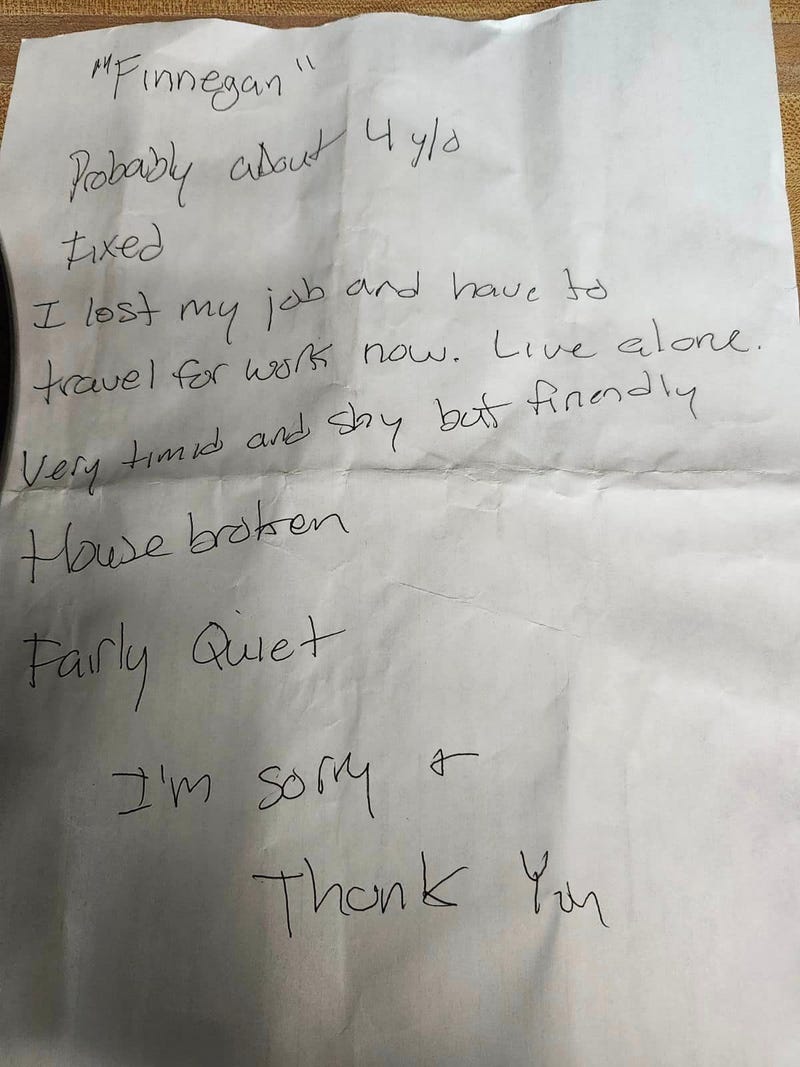 "Finnegan"
Probably about 4 y/o
Fixed
I lost my job and have to
travel for work now. Live alone.
Very timid and shy but friendly
House broken
Fairly Quiet
I'm sorry &
Thank You